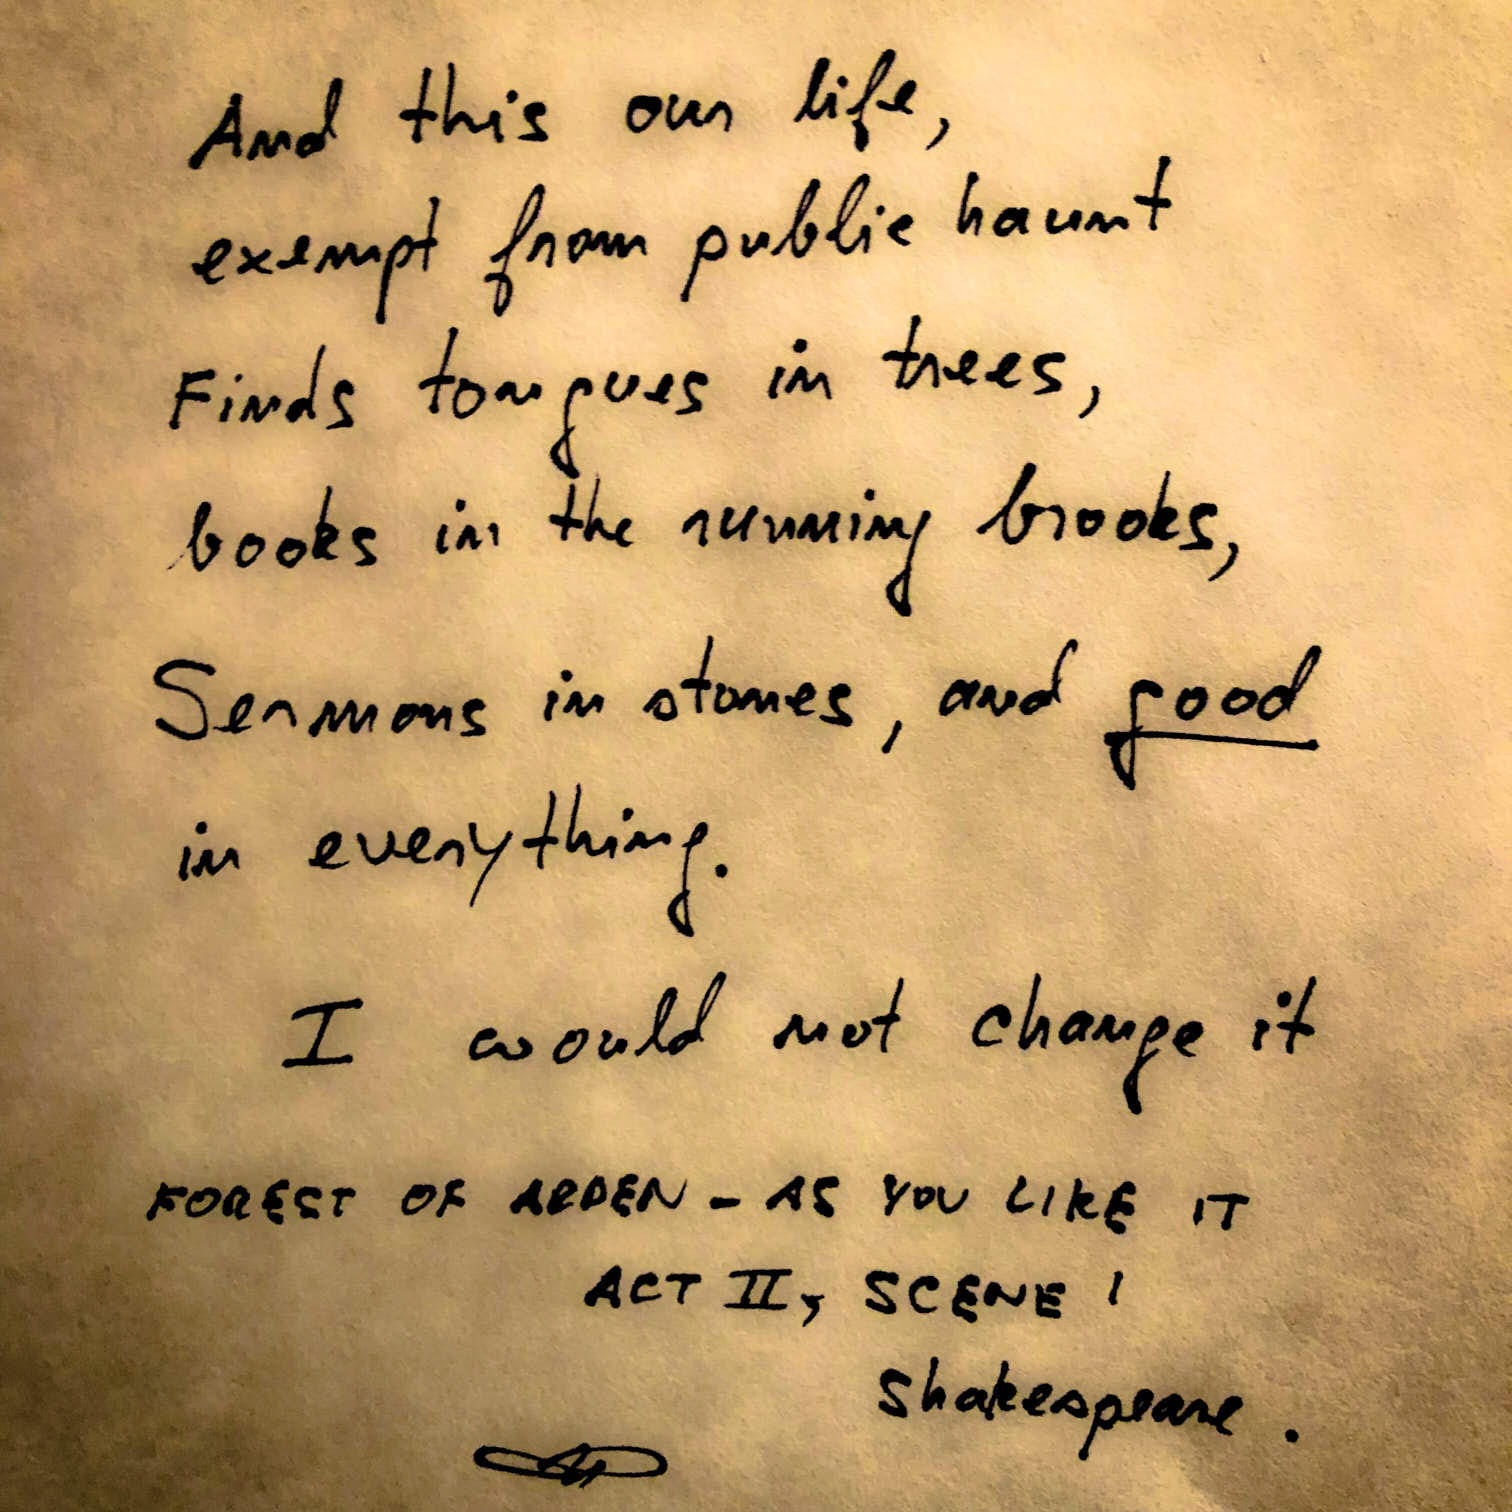 And this our life,
exempt from public haunt
Finds tongues in trees,
books in the running brooks,
Sermons in stones, and good
in everything.
I would not change it
FOREST OF ARDEN - AS YOU LIKE IT
ACT II, SCENE I
Shakespeare.